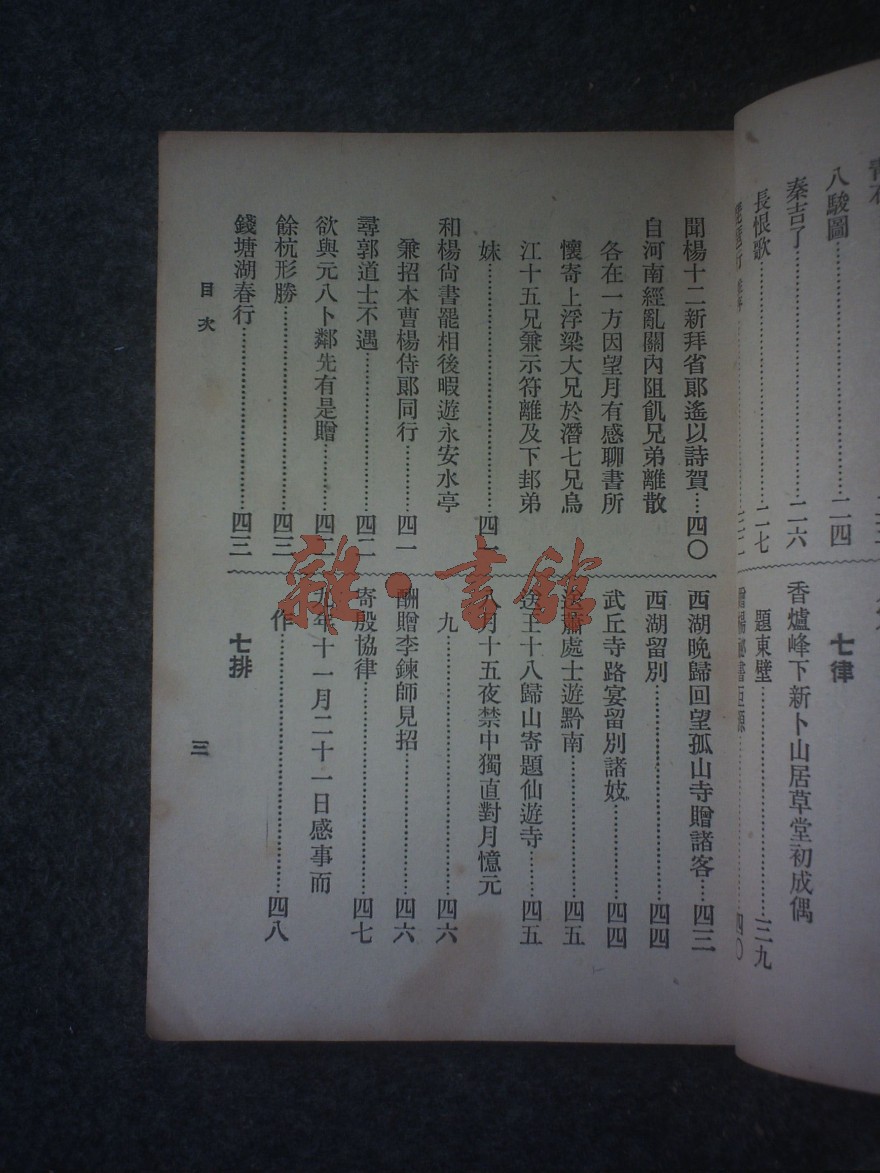 八駿圖……二四
秦吉了……二六
長恨歌……二七
七律
香爐峰下新卜山居草堂初成偶
題東壁……三九
四〇
聞楊十二新拜省郎遙以詩賀…四〇
自河南經亂關內阻飢兄弟離散
各在一方因望月有感聊書所
懷寄上浮梁大兄於潛七兄烏
江十五兄兼示符離及下邽弟
妹……四一
和楊尙書罷相後暇遊永安水亭
兼招本曹楊侍郎同行……四一
尋郭道士不遇……四二
欲與元八卜鄰先有是贈……四二
餘杭形勝……四三
錢塘湖春行……四三
西湖晚歸回望孤山寺贈諸客…四三
西湖留別……四四
武丘寺路宴留別諸妓……四四
送蕭處士遊黔南……四五
送王十八歸山寄題仙遊寺……四五
八月十五夜禁中獨直對月憶元
九……四六
酬贈李鍊師見招……四六
寄殷協律……四七
九年十一月二十一日感事而
作……四八
七排
目次
三
雜·書館